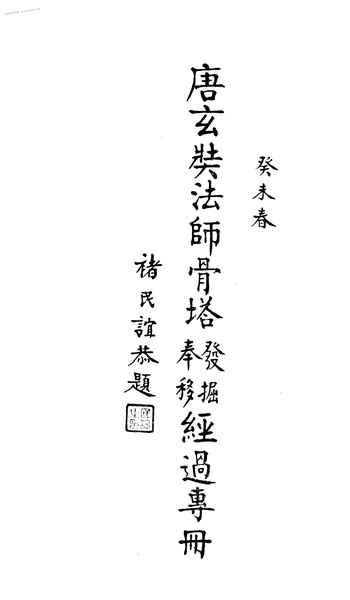 癸未春
唐玄奘法師骨塔發掘奉移經過專冊
褚民誼恭題